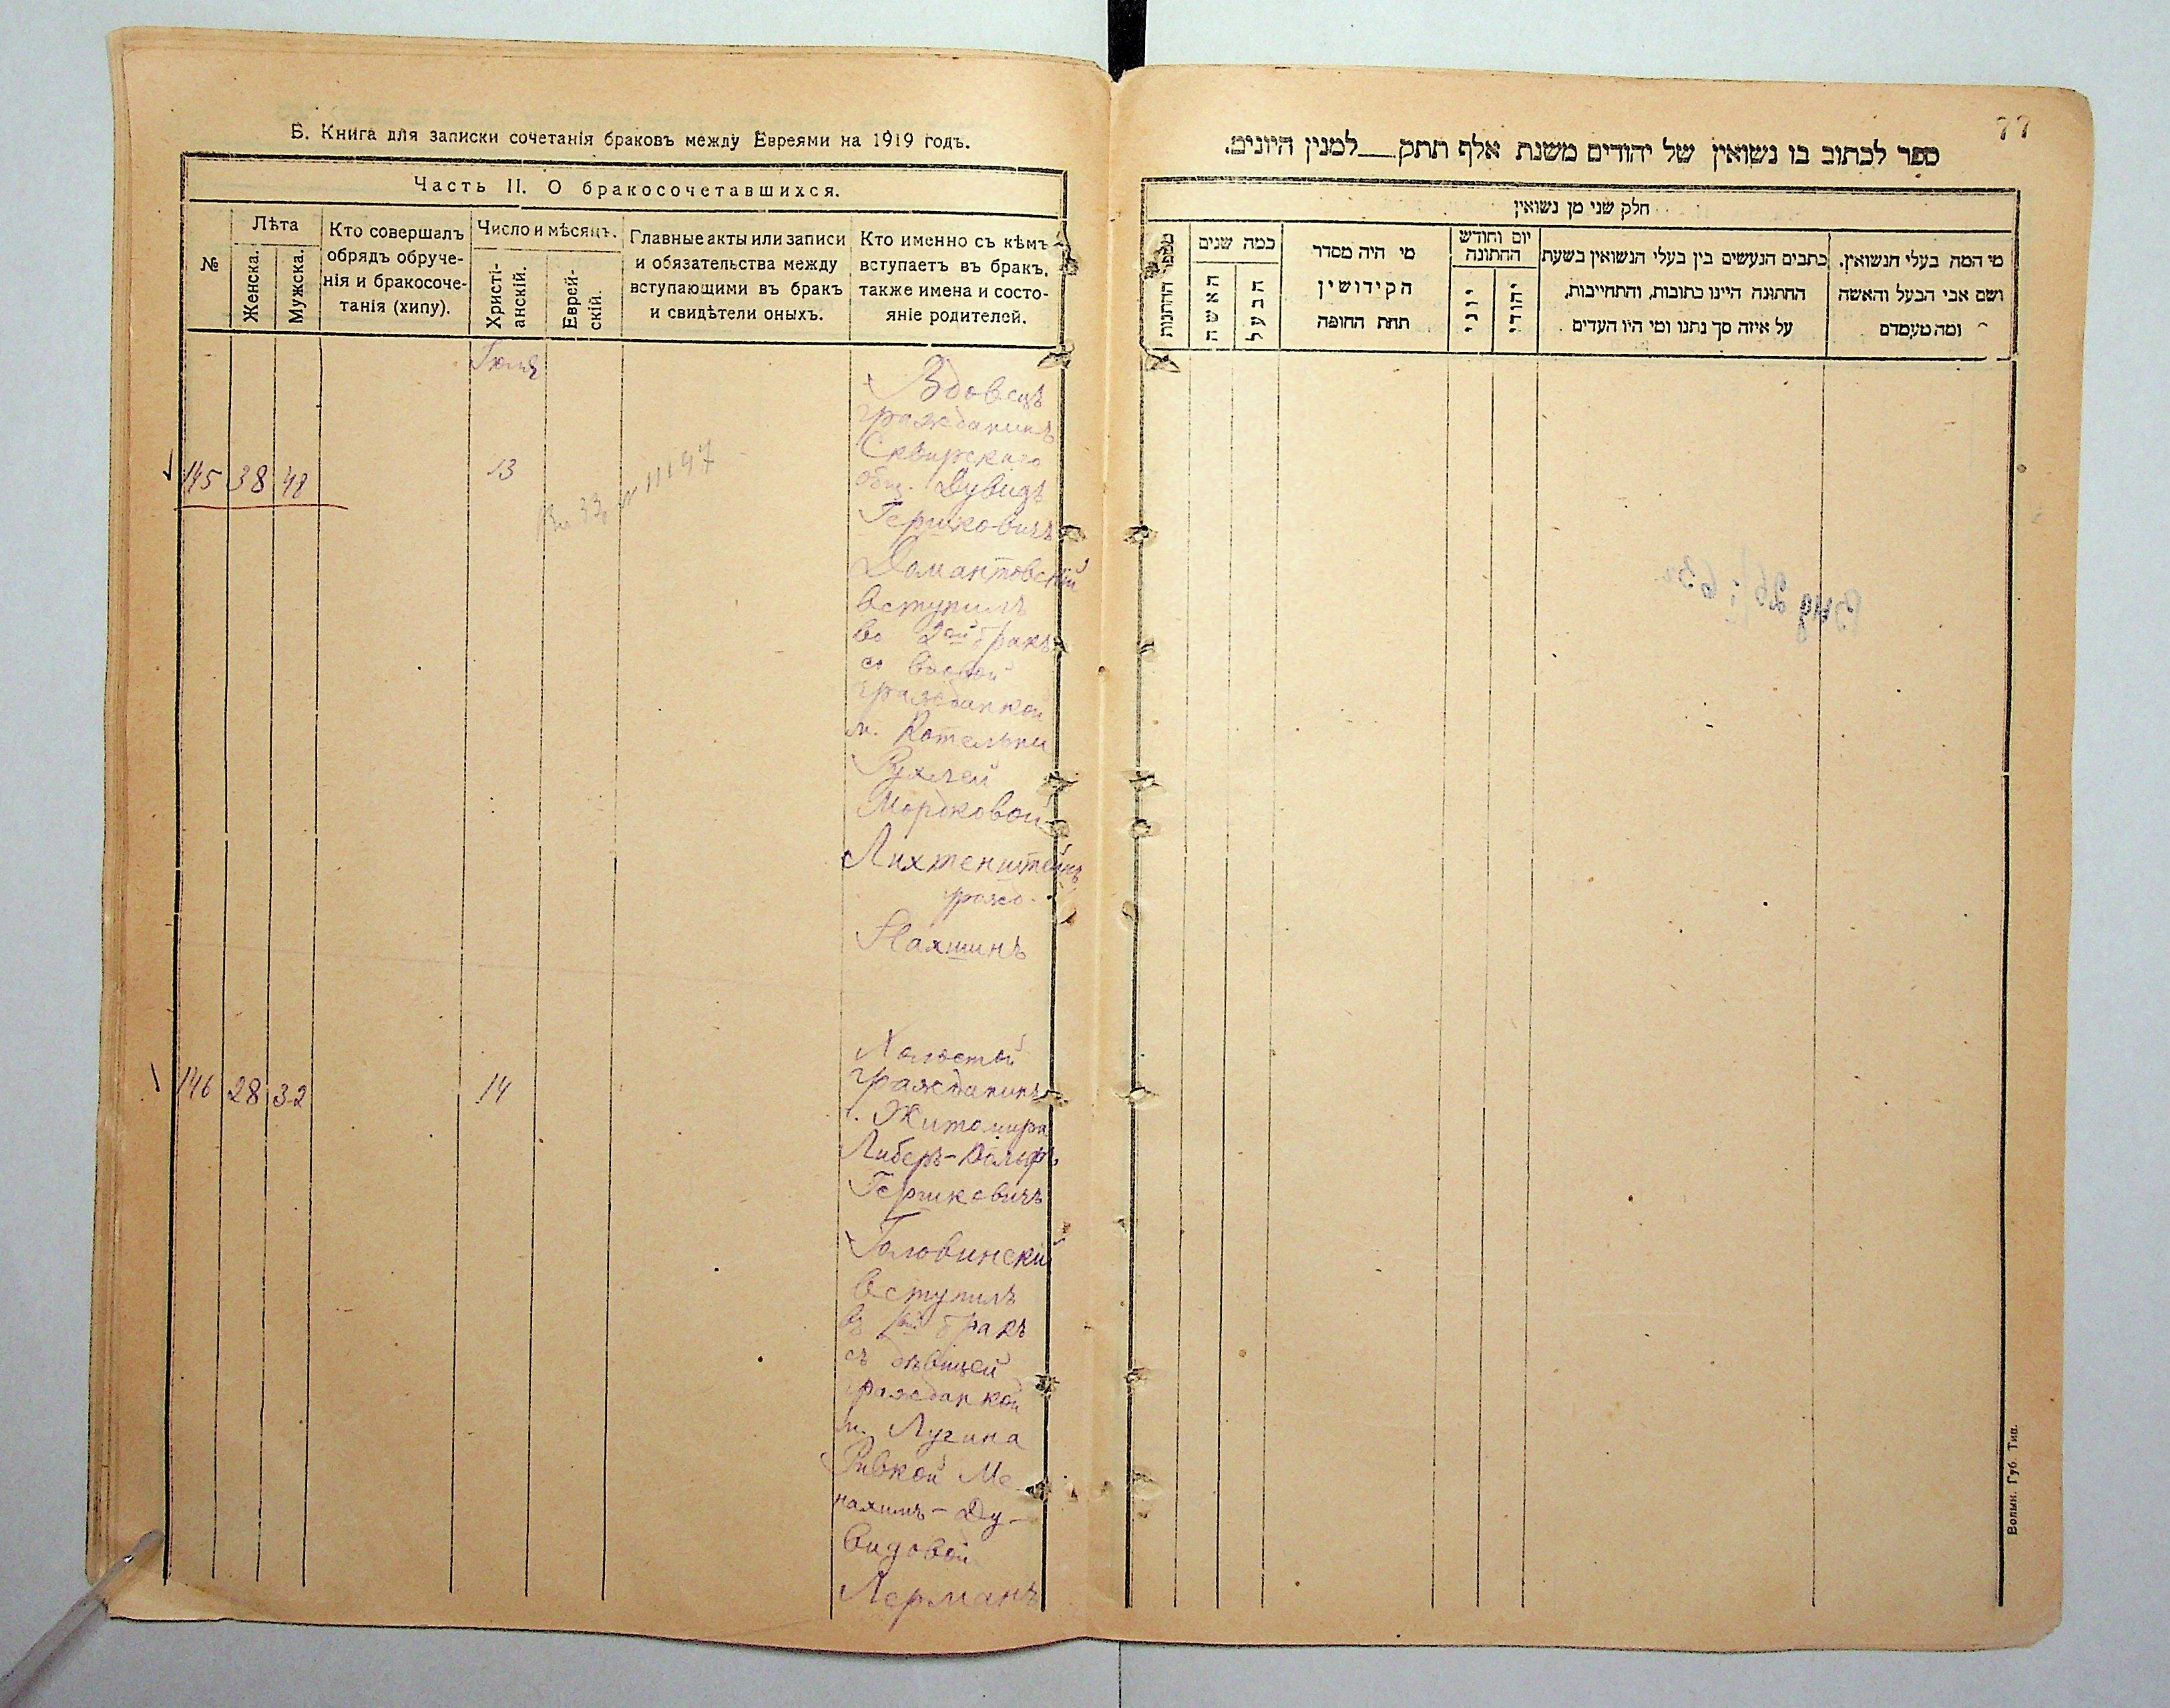 Б. Книга для записки сочетанія браковъ между Евреями на 1919 годъ.
Часть II. О бракосочетавшихся.
№
Лѣта
Женска.
Мужска.
Кто совершалъ
обрядъ обруче-
нія и бракосоче-
танія (хипу).
Число и мѣсяцъ.
Христі-
анскій.
Еврей-
скій.
Главные акты или записи
и обязательства между
вступающими въ бракъ
и свидѣтели оныхъ.
Кто именно съ кѣмъ
вступаетъ въ бракъ,
также имена и состо-
яніе родителей.
Іюля
145 38 48 13
Вдовецъ
гражданинъ
Сквирскаго
общ. Дувидъ
Гершковичъ
Домантовскій
вступилъ
во 2ой бракъ
со вдовой
гражданкой
м. Котельни
Рухлей
Мордковой
Лихтенштейнъ
рожд.
Нахшинъ
146 28 32 14
Холостой
гражданинъ
г. Житомира
Либеръ-Вольфъ
Гершковичъ
Головинскій
вступилъ
въ 1ый бракъ
съ дѣвицей
гражданкой
м. Лугина
Ривкой Ме-
нахимъ-Ду-
видовой
Лерманъ
77
ספר לכתוב בו נשואין של יהודים משנת אלף תתק___למנין היונים.
חלק שני מן נשואין
מספר החתונות
כמה שנים
האשה
הבעל
מי היה מסדר
הקידושין
תחת החופה
יום וחודש
החתונה
יוני
יהודי
כתבים הנעשים בין בעלי הנשואין בשעת
החתונה היינו כתובות, והתחייבות,
על איזה סך נתנו ומי היו העדים
מי המה בעלי הנשואין.
ושם אבי הבעל והאשה
ומה מעמדם
Волын. Губ. Тип.